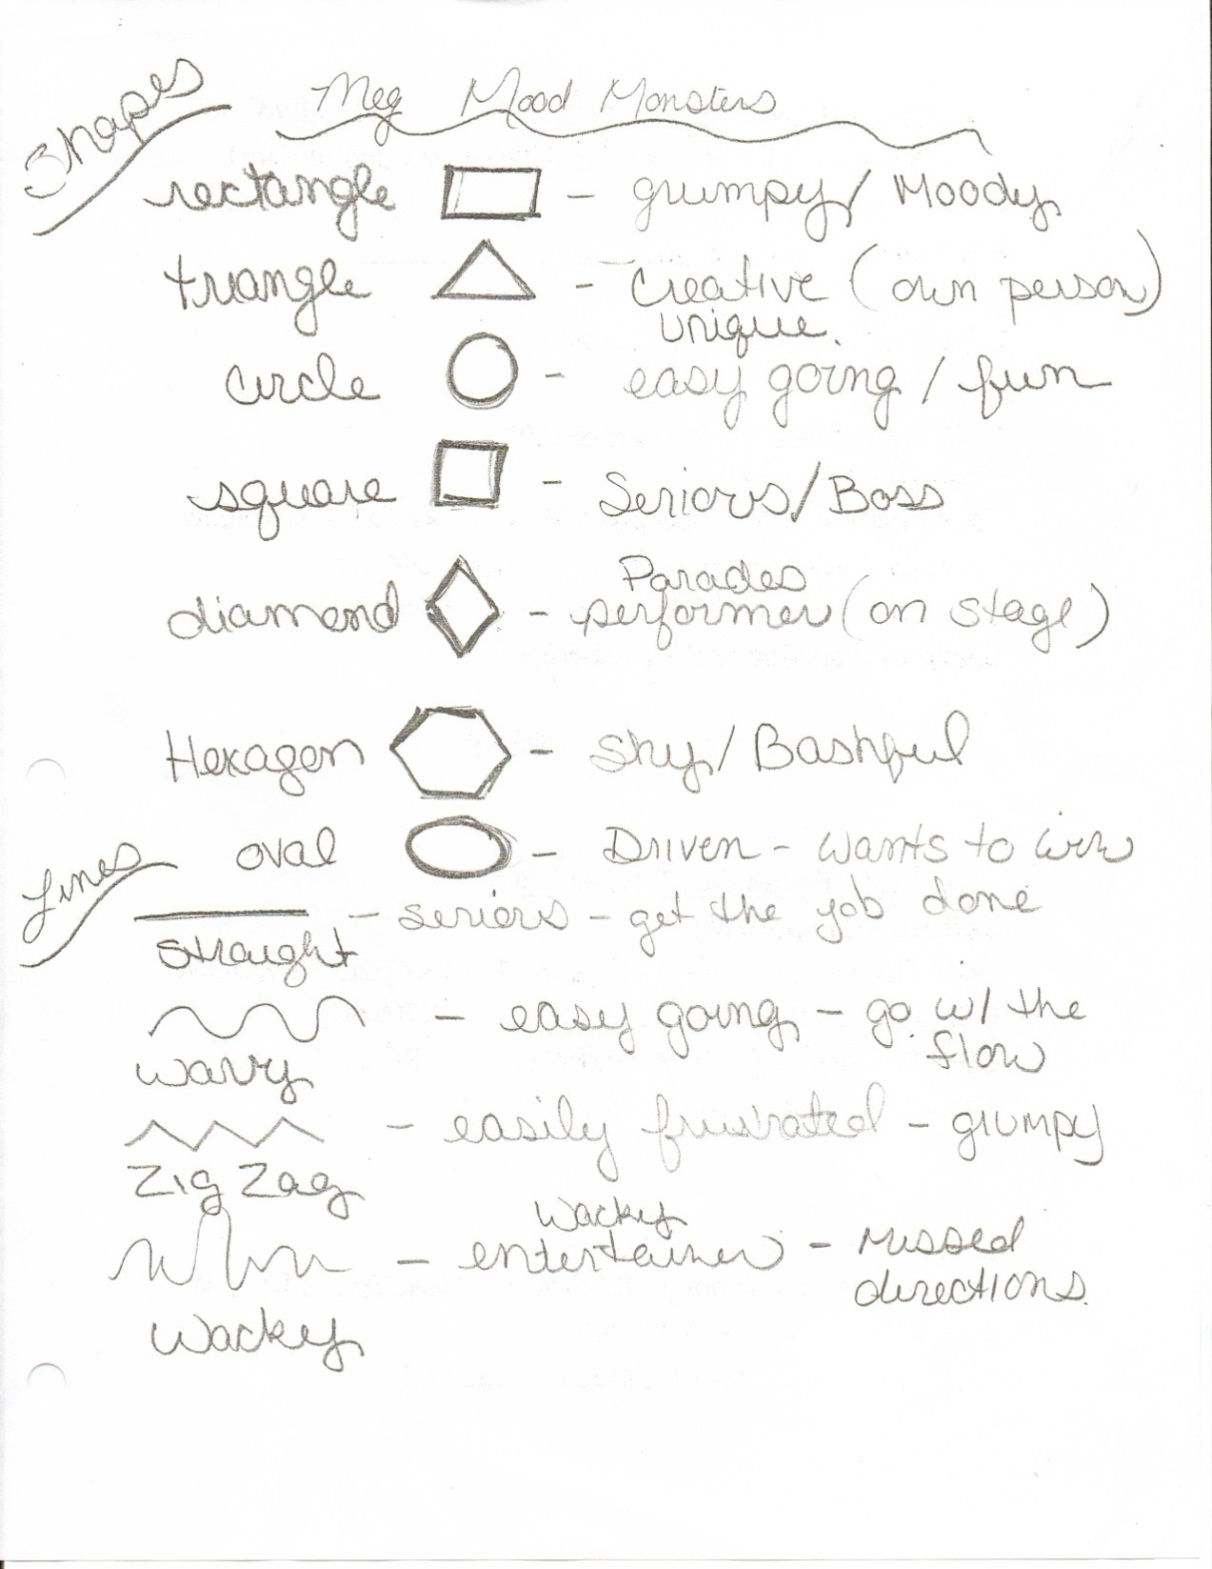 Shapes
Meg Mood Monsters
rectangle - grumpy/ Moody
triangle - Creative (own person)
unique.
circle - easy going / fun
square - Serious/Boss
Parades
diamond - performer (on stage)
Hexagon - Shy/ Bashful
oval - Driven - wants to win
Lines
- serious - get the job done
straight
- easy going - go w/ the
flow
wavvy
- easily frustrated - grumpy
Zig Zag
Wacky
- entertainer - missed
directions.
Wacky